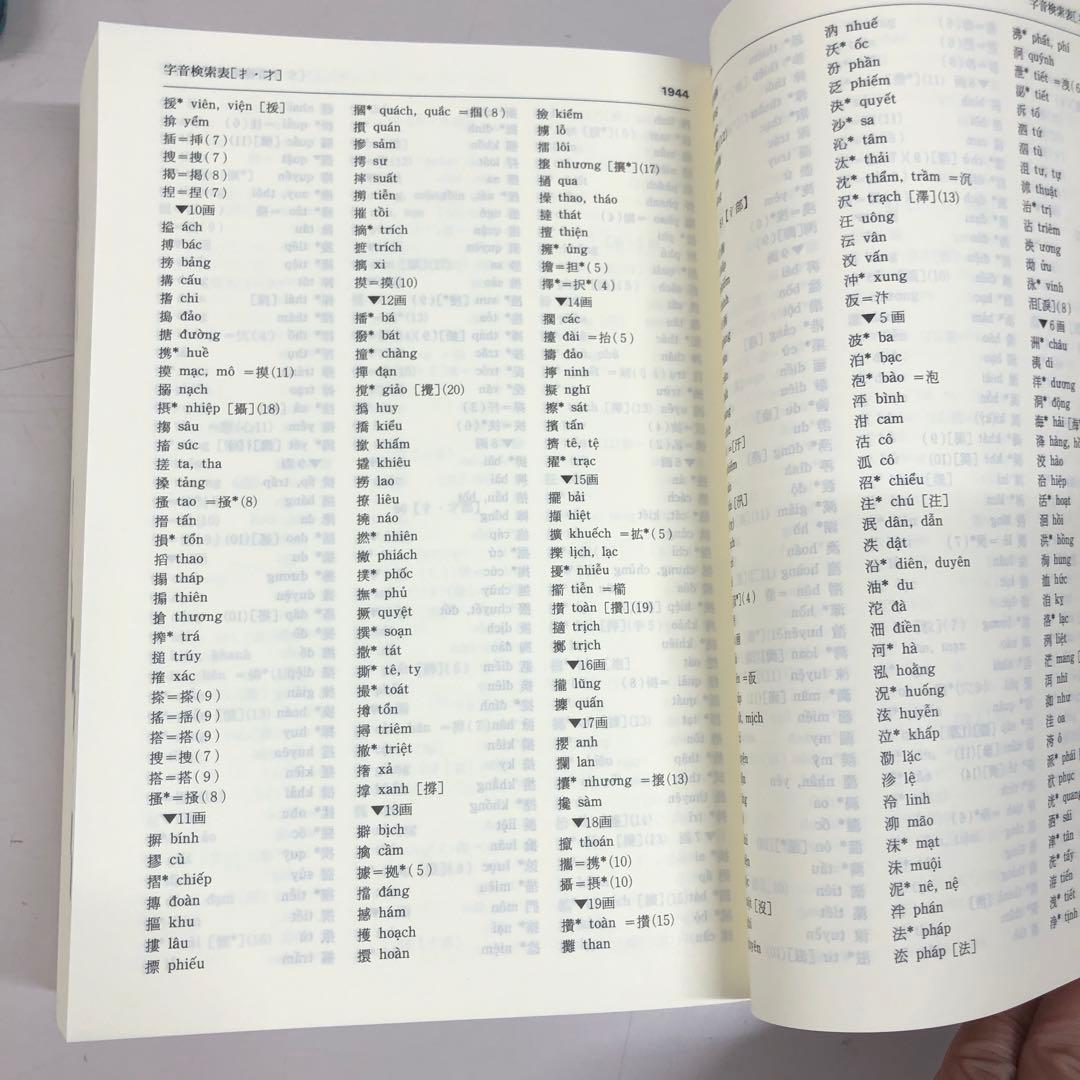 字音検索表[扌・才]
1944
援* viên, viện [援]
揜 yểm
插=挿(7)
搜=捜(7)
揭=掲(8)
揑=捏(7)
▼10画
搤 ách
搏 bác
搒 bảng
搆 cấu
搘 chi
搗 đảo
搪 đường
携* huề
摸 mạc, mô =摸(11)
搦 nạch
摂* nhiệp [攝](18)
搊 sâu
搐 súc
搓 ta, tha
搡 tảng
搔 tao =掻*(8)
搢 tấn
損* tổn
搯 thao
搨 tháp
搧 thiên
搶 thương
搾* trá
搥 trúy
搉 xác
搽=搽(9)
搖=揺(9)
搭=搭(9)
搜=捜(7)
搭=搭(9)
搔*=掻(8)
▼11画
摒 bính
摎 cù
摺* chiếp
摶 đoàn
摳 khu
摟 lâu
摽 phiếu
摑* quách, quắc =掴(8)
摜 quán
摻 sảm
摴 sư
摔 suất
摕 tiễn
摧 tồi
摘* trích
摭 trích
摛 xi
摸=摸(10)
▼12画
播* bá
撥* bát
撞* chàng
撣 đạn
撹* giảo [攪](20)
撝 huy
撟 kiểu
撳 khấm
撬 khiêu
撈 lao
撩 liêu
撓 náo
撚* nhiên
撇 phiách
撲* phốc
撫* phủ
撅 quyệt
撰* soạn
撒* tát
撕* tê, ty
撮* toát
撙 tổn
撏 triêm
撤* triệt
撦 xả
撑 xanh [撐]
▼13画
擗 bịch
擒 cầm
據=拠*(5)
擋 đáng
撼 hám
擭 hoạch
擐 hoàn
撿 kiểm
擄 lỗ
擂 lôi
攘 nhương [攘*](17)
撾 qua
操 thao, tháo
撻 thát
擅 thiện
擁* ủng
擔=担*(5)
擇*=択*(4)
▼14画
擱 các
擡 đài =抬(5)
擣 đảo
擰 ninh
擬 nghĩ
擦* sát
擯 tấn
擠 tê, tệ
擢* trạc
▼15画
擺 bải
擷 hiệt
擴 khuếch =拡*(5)
擽 lịch, lạc
擾* nhiễu
擳 tiễn =櫛
攢 toàn [攢](19)
擿 trịch
擲 trịch
▼16画
攏 lũng
攈 quấn
▼17画
攖 anh
攔 lan
攘* nhương =攘(13)
攙 sàm
▼18画
攛 thoán
攜=携*(10)
攝=摂*(10)
▼19画
攢* toàn =攢(15)
攤 than
汭 nhuế
沃* ốc
汾 phần
泛 phiếm
決* quyết
沙* sa
沁 tâm
汰* thải
沈* thẩm, trầm =沉
沢* trạch [澤](13)
汪 uông
沄 vân
汶 vấn
沖* xung
汳=汴
▼5画
波* ba
泊* bạc
泡* bào =泡
泙 bình
泔 cam
沽 cô
泒 cô
沼* chiểu
注* chú [注]
泯 dân, dẫn
泆 dật
沿* diên, duyên
油* du
沱 đà
沺 điền
河* hà
泓 hoằng
況* huống
泫 huyễn
泣* khấp
泐 lạc
沴 lệ
泠 linh
泖 mão
沫* mạt
沬 muội
泥* nê, nệ
泮 phán
法* pháp
泫 pháp [法]
沸* phất, phí
泂 quýnh
泄* tiết
泝 tố
泗 tứ
沮 tư, tự
沭 thuật
治* trị
沾 triêm
泱 ương
泑 ửu
泳* vinh
泪[淚](8)
▼6画
洲* châu
洟 di
洋* dương
洞* động
海* hải
洛 hàng
洨 hào
洽 hiệp
活* hoạt
洄 hồi
洪* hồng
洶 hung
洫 húc
洎 ky
洛* lạc
洌 liệt
洱 nhĩ
洳 như
洼 oa
洿 ô
派* phái
洑 phục
洸* quang
洒* sái
津* tân
洗* tẩy
洊 tiến
洩* tiết
浄* tịnh